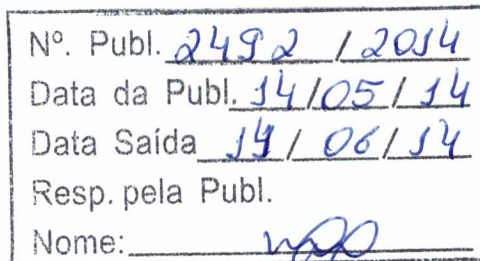 Nº. Publ. 2492 / 2014
Data da Publ. 14/05/14
Data Saída 14 / 06/14
Resp. pela Publ.
Nome: